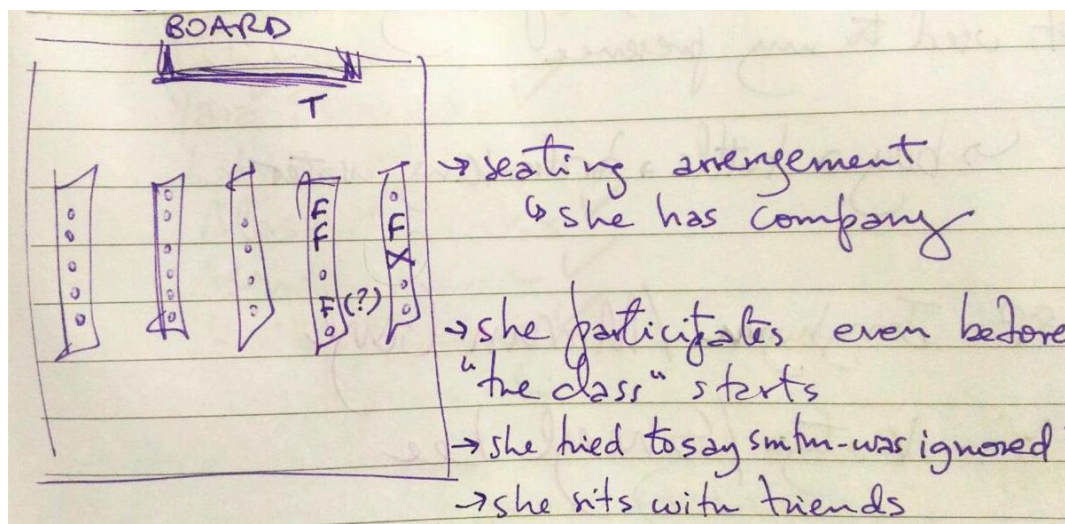 BOARD
T
F
F
F (?)
F
X
→ seating arrengement
↳ she has company
→ she participates even before
"the class" starts
→ she tried to say smtm - was ignored
→ she sits with friends